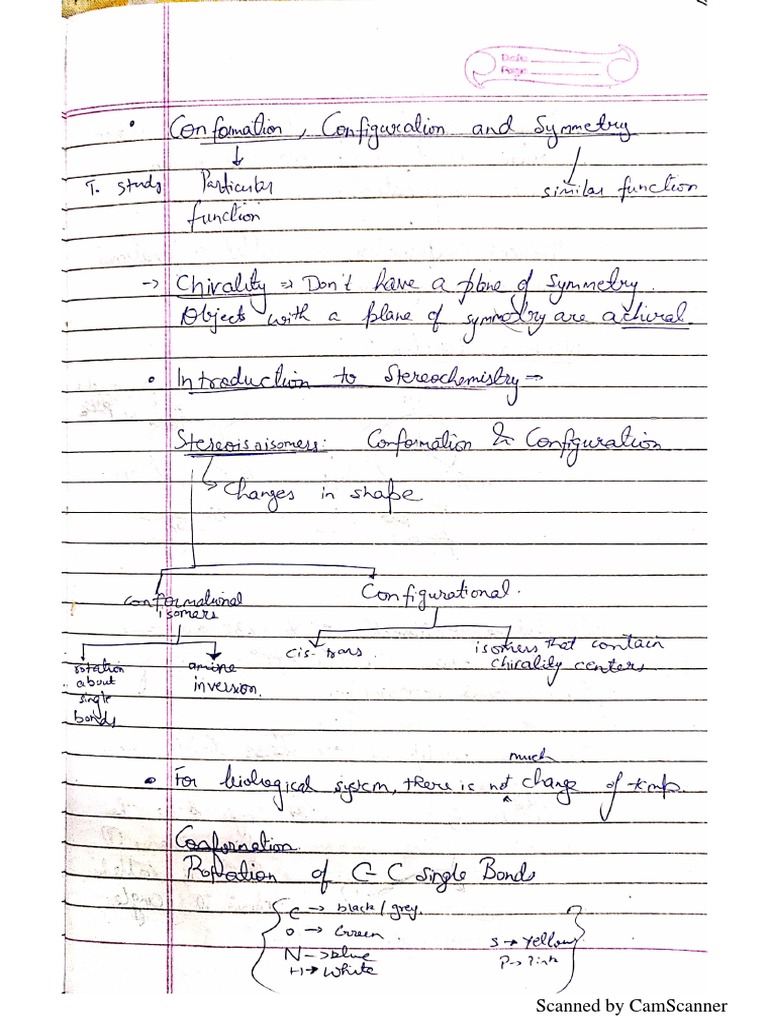 Date
Page
• Conformation, Configuration and Symmetry
T. study Particular function
similar function
-> Chirality => Don't have a plane of symmetry.
Objects with a plane of symmetry are achiral.
• Introduction to Stereochemistry →
Stereoisoisomers: Conformation & Configuration
↳ Changes in shape
Conformational isomers
Configurational.
cis-trans
isomers that contain
chirality centers
rotation about single bonds
amine inversion.
• For biological system, there is not much change of temp.
Conformation
Rotation of C-C single Bonds
C → black/grey.
O → Green
N → blue
H → White
S → Yellow
P → Pink
Scanned by CamScanner